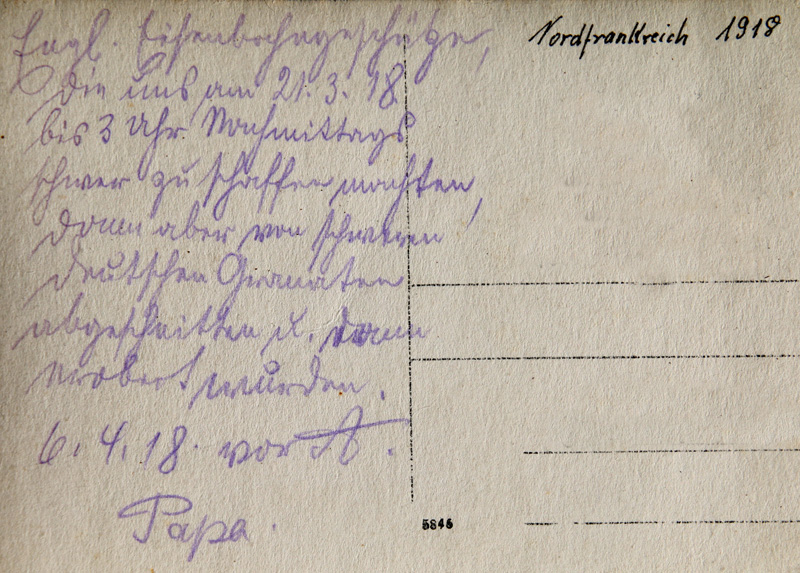 Nordfrankreich 1918
Engl. Eisenbahngeschütze,
die uns am 21. 3. 18
bis 3 Uhr Nachmittags
schwer zu schaffen machten,
dann aber von schweren
deutschen Granaten
abgeschnitten u. dann
erobert wurden.
6. 4. 18. vor A.
Papa.
5846